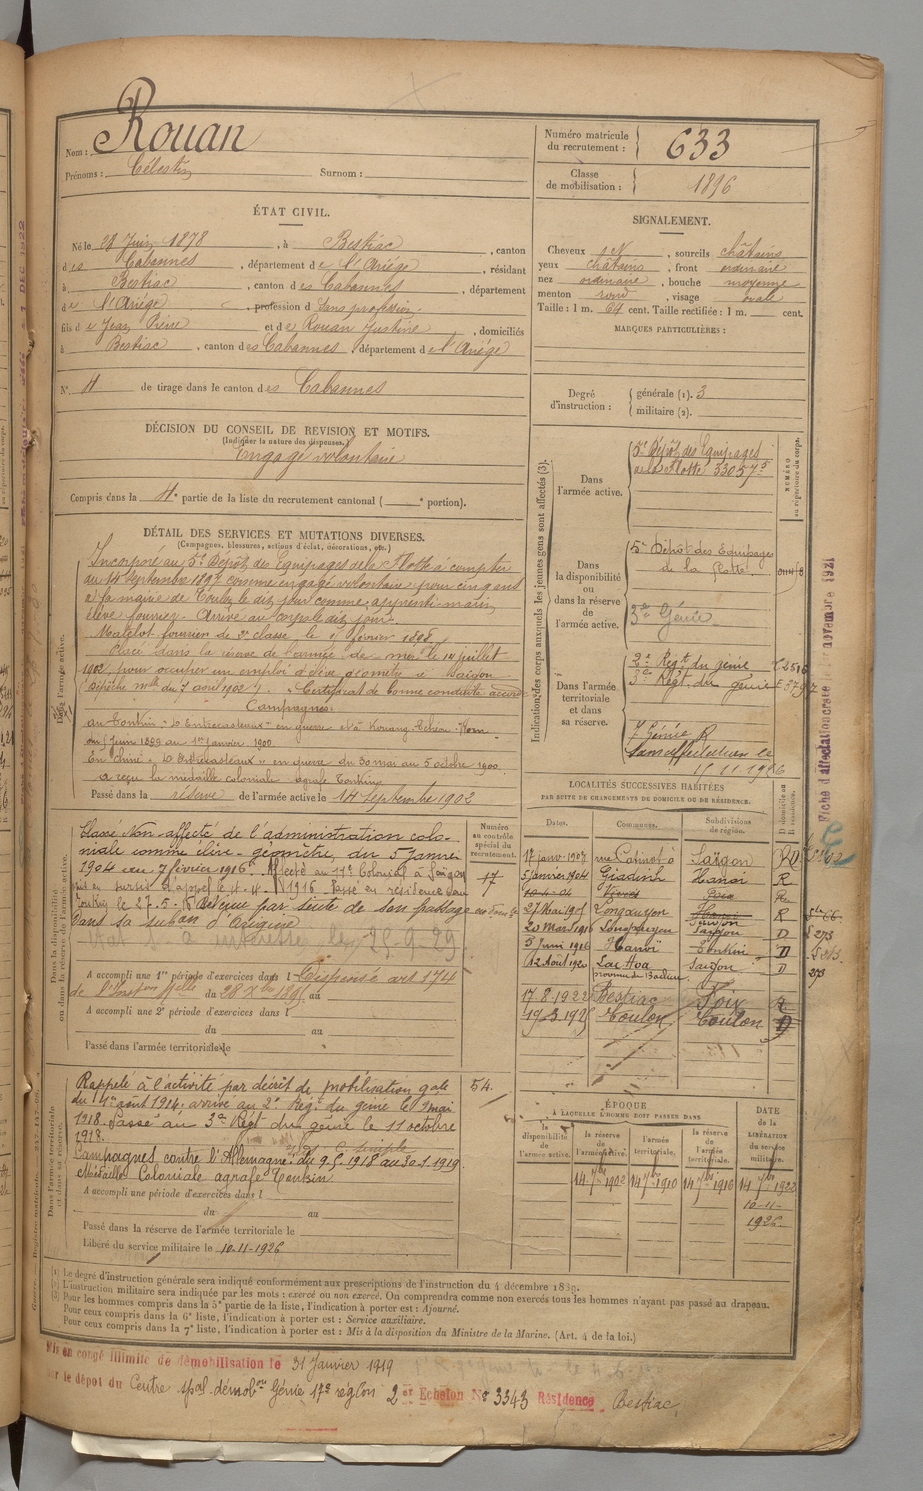 Nom : Rouan
Prénoms : Célestin Surnom :
Numéro matricule du recrutement : 633
Classe de mobilisation : 1896
ÉTAT CIVIL.
Né le 28 Juin 1878, à Bestiac, canton
des Cabannes, département de l'Ariège, résidant
à Bestiac, canton des Cabannes, département
de l'Ariège, profession de Sans profession,
fils de Jean Pierre et de Rouan Justine, domiciliés
à Bestiac, canton des Cabannes, département de l'Ariège
N° 4 de tirage dans le canton des Cabannes
SIGNALEMENT.
Cheveux, sourcils châtains
yeux châtains, front ordinaire
nez ordinaire, bouche moyenne
menton rond, visage ovale
Taille : 1 m. 64 cent. Taille rectifiée : 1 m. cent.
MARQUES PARTICULIÈRES :
Degré d'instruction : générale (1). 3
militaire (2).
DÉCISION DU CONSEIL DE REVISION ET MOTIFS.
(Indiquer la nature des dispenses.)
Engagé volontaire
Compris dans la 4e partie de la liste du recrutement cantonal ( e portion).
DÉTAIL DES SERVICES ET MUTATIONS DIVERSES.
(Campagnes, blessures, actions d'éclat, décorations, etc.)
Dans l'armée active.
Incorporé au 5e Dépôt des Equipages de la Flotte à compter
du 14 Septembre 1897 comme engagé volontaire pour cinq ans
à la mairie de Toulon le dit jour comme apprenti-marin
élève fourrier. Arrivé au corps le dit jour.
Matelot fourrier de 3e classe le février 1898
Placé dans la réserve de l'armée de mer le 14 juillet
1902, pour occuper un emploi d'élève géomètre à Saïgon
(Dépêche mlle du 7 août 1902). Certificat de bonne conduite accordé
Campagnes :
au Tonkin "D'Entrecasteaux" en guerre et à Kouang-Tchéou-Wan
du Juin 1899 au 1er Janvier 1900
En Chine "D'Entrecasteaux" en guerre du 30 mai au 5 octobre 1900
a reçu la médaille coloniale agrafe Tonkin
Passé dans la réserve de l'armée active le 14 Septembre 1902
Indication des corps auxquels les jeunes gens sont affectés (3).
NUMÉRO au répertoire du corps.
Dans l'armée active.
5e Dépôt des Equipages
de la Flotte 33057 5
Dans la disponibilité ou dans la réserve de l'armée active.
5e Dépôt des Equipages
de la Flotte
3e Génie
Dans l'armée territoriale et dans sa réserve.
2e Régt du génie
3e Régt du génie
7 Génie R
Sans affectation le
11 11 1926
Fiche d'affectation créée le novembre 1921
Dans la disponibilité ou dans la réserve de l'armée active.
Numéro au contrôle spécial du recrutement.
Classé Non-affecté de l'administration colo-
niale comme élève-géomètre, du 5 Janvier
1904 au 7 février 1916. Affecté au 11e Colonial à Saïgon
mis en sursis d'appel le 1916. Passé en résidence au
Tonkin le 27-5- Revenue par suite de son passage
dans sa subdon d'origine
17
A accompli une 1re période d'exercices dans l Dispensé art 174
de l'Inston Mlle du 28 Xbre 1895 au
A accompli une 2e période d'exercices dans l
du au
Passé dans l'armée territoriale le
LOCALITÉS SUCCESSIVES HABITÉES
PAR SUITE DE CHANGEMENTS DE DOMICILE OU DE RÉSIDENCE.
Dates. Communes. Subdivisions de région. D domicile ou R résidence.
17 janv. 1907 rue Catinat à Saïgon
5 janvier 1904 Giadinh Hanoi R
27 Mai 1905 Longxuyen Saïgon R
20 Mars 1916 Longxuyen Saïgon D 273
5 Juin 1916 Hanoï Tonkin D
12 Août 1920 Saïgon D 273
17 8 1922 Bestiac Foix R
19 3 1925 Toulon Toulon D
Dans l'armée territoriale et dans sa réserve.
Rappelé à l'activité par décret de mobilisation gale
du 1er août 1914, arrivé au 2e Régt du génie le 9 mai
1918. Passé au 3e Régt du génie le 11 octobre
1918.
Campagnes contre l'Allemagne simple du 9-5-1918 au 30-1-1919
Médaille Coloniale agrafe Tonkin
54.
A accompli une période d'exercices dans l
du au
Passé dans la réserve de l'armée territoriale le
Libéré du service militaire le 10-11-1926
ÉPOQUE
À LAQUELLE L'HOMME DOIT PASSER DANS
la disponibilité de l'armée active. la réserve de l'armée active. l'armée territoriale. la réserve de l'armée territoriale. DATE de la LIBÉRATION du service militaire.
14 7bre 1902 14 7bre 1910 14 7bre 1916 14 7bre 1922
10-11-
1926
(1) Le degré d'instruction générale sera indiqué conformément aux prescriptions de l'instruction du 4 décembre 1889.
(2) L'instruction militaire sera indiquée par les mots : exercé ou non exercé. On comprendra comme non exercés tous les hommes n'ayant pas passé au drapeau.
(3) Pour les hommes compris dans la 5e partie de la liste, l'indication à porter est : Ajourné.
Pour ceux compris dans la 6e liste, l'indication à porter est : Service auxiliaire.
Pour ceux compris dans la 7e liste, l'indication à porter est : Mis à la disposition du Ministre de la Marine. (Art. 4 de la loi.)
Mis en congé illimité de démobilisation le 31 Janvier 1919
par le dépôt du Centre spal démobon Génie 17e région 2e Echelon No 3343 Résidence Bestiac